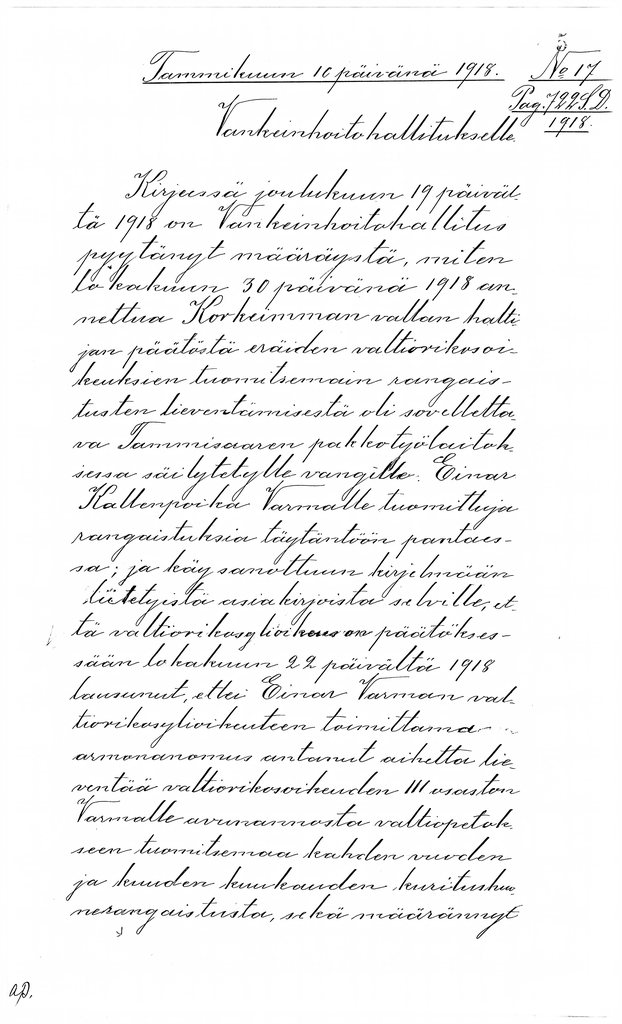 Tammikuun 16 päivänä 1918.
No 17
Pag. 722 S.D.
1918.
Vankeinhoitohallitukselle.
Kirjeessä joulukuun 19 päiväl-
tä 1918 on Vankeinhoitohallitus
pyytänyt määräystä, miten
lokakuun 30 päivänä 1918 an-
nettua Korkeimman vallan halti-
jan päätöstä eräiden valtiorikosoi-
keuksien tuomitsemain rangais-
tusten lieventämisestä oli sovelletta-
va Tammisaaren pakkotyölaitok-
sessa säilytetylle vangille. Einar
Kallenpoika Varmalle tuomittuja
rangaistuksia täytäntöön pantaes-
sa; ja käy sanottuun kirjelmään
liitetyistä asiakirjoista selville, et-
tä valtiorikosylioikeus on päätökses-
sään lokakuun 22 päivältä 1918
lausunut, ettei Einar Varman val-
tiorikosylioikeuteen toimittama
armonanomus antanut aihetta lie-
ventää valtiorikosoikeuden III osaston
Varmalle avunannosta valtiopetok-
seen tuomitsemaa kahden vuoden
ja kuuden kuukauden kuritushuo-
nerangaistusta, sekä määrännyt
ap.